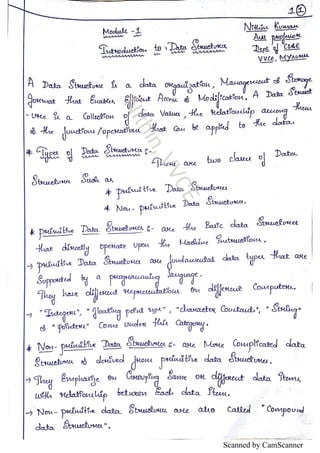 1 1
Nithin Kumar
Asst professor
Dept of CS&E
VVCE, Mysuru
Module - 1
Introduction to : Data Structures
A Data Structure is a data organization, Management & Storage
format that Enables Efficient Access & Modification. A Data Struct
-ure is a Collection of data Values, the relationship among them
& the functions/operations that can be applied to the data.
* Types of Data Structures :-
There are two classes of Data
Structures Such as
* primitive Data Structures
* Non - primitive Data Structures.
* primitive Data Structures :- are the Basic data Structures
that directly operate upon the Machine Instructions.
→ primitive Data Structures are fundamental data types that are
Supported by a programming language.
They have different representations on different Computers.
→ "Integers", "floating point type", "character Constants", "String"
& "pointers" Come Under this Category.
* Non - primitive Data Structures :- are More Complicated data
Structures & derived from primitive data Structures.
→ They Emphasize on Grouping Same or different data Items
with relationship between Each data Item.
→ Non - primitive data Structures are also Called "Compound
data Structures".
Nithin VVCE
Scanned by CamScanner